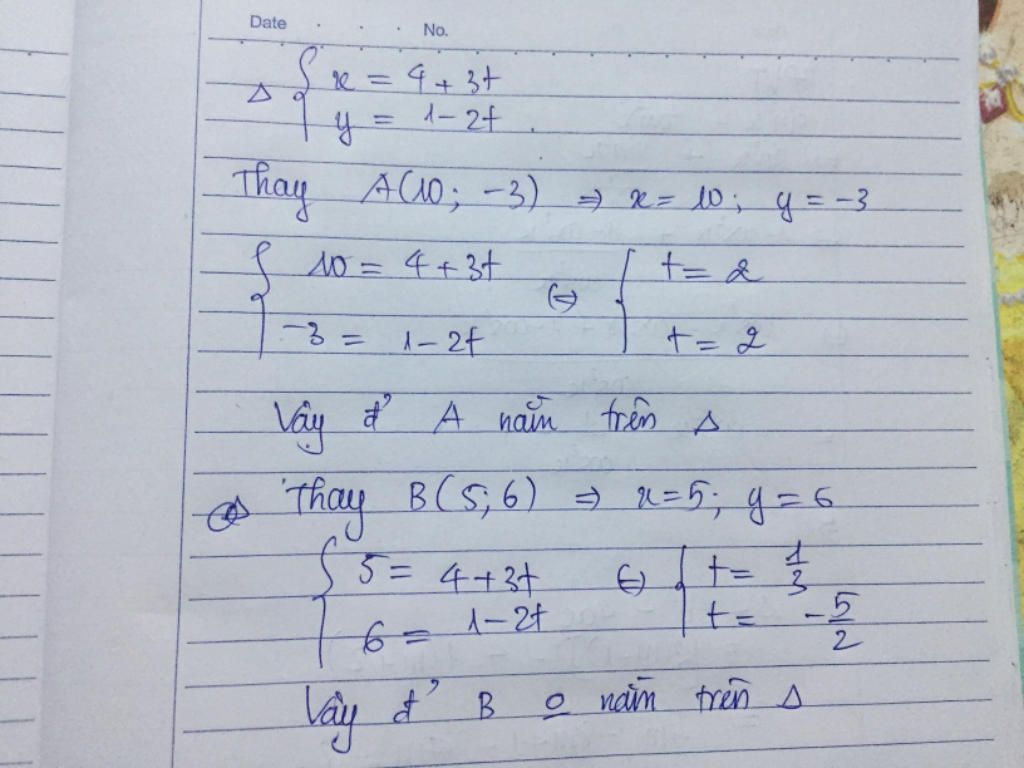 Date . . . No.
Δ { x = 4 + 3t
y = 1 - 2t .
Thay A(10; -3) => x = 10; y = -3
{ 10 = 4 + 3t <=> { t = 2
-3 = 1 - 2t t = 2
Vậy đ' A nằm trên Δ
Thay B(5; 6) => x = 5; y = 6
{ 5 = 4 + 3t <=> { t = 1/3
6 = 1 - 2t t = -5/2
Vậy đ' B o nằm trên Δ